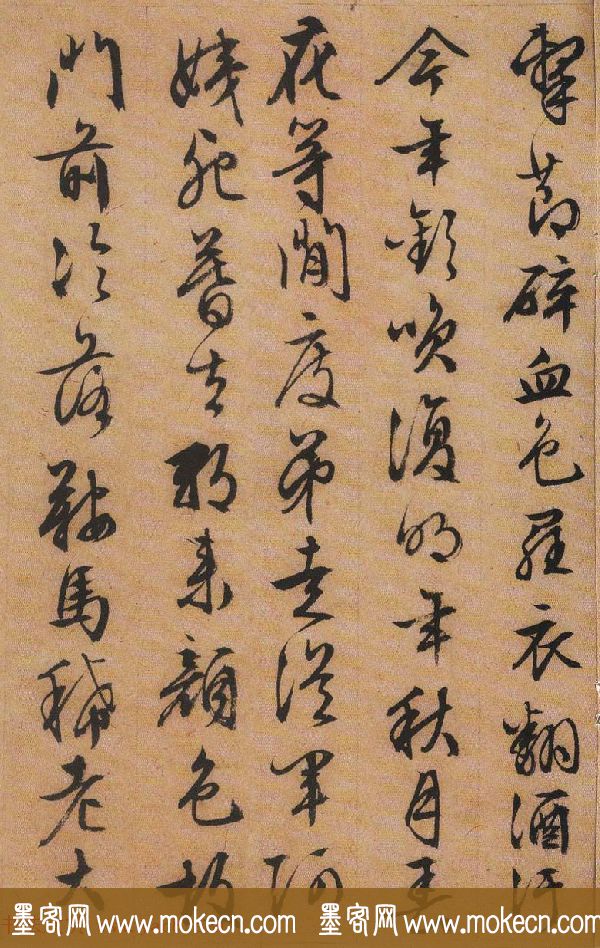 擊節碎血色羅衣翻酒汙
今年歡咲復明年秋月
等閒度弟走從軍阿
姨死暮去朝來顏色故
門前冷落鞍馬稀老大
墨客网 www.mokecn.com 墨客网 www.mokecn.com